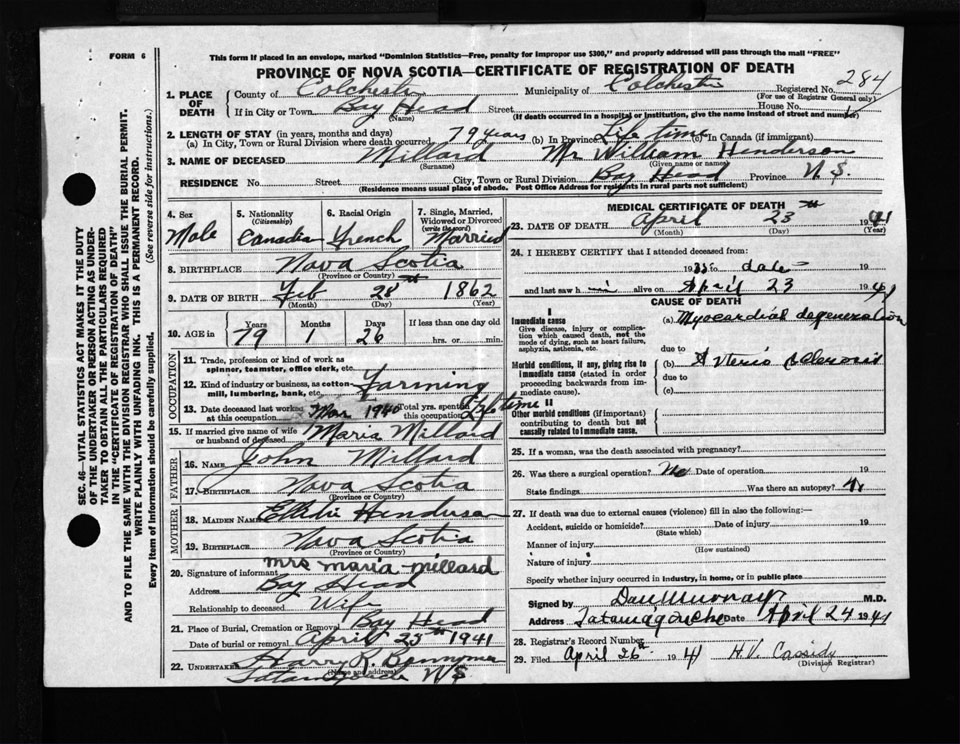 FORM 6
This form if placed in an envelope, marked "Dominion Statistics—Free, penalty for improper use $300," and properly addressed will pass through the mail "FREE"
PROVINCE OF NOVA SCOTIA—CERTIFICATE OF REGISTRATION OF DEATH
284
1. PLACE OF DEATH County of Colchester Municipality of Colchester Registered No. (For use of Registrar General only)
If in City or Town Bay Head (Name) Street House No.
(If death occurred in a hospital or institution, give the name instead of street and number)
2. LENGTH OF STAY (in years, months and days)
(a) In City, Town or Rural Division where death occurred 79 years (b) In Province Life time (c) In Canada (if immigrant)
3. NAME OF DECEASED Millard (Surname) Mr William Henderson (Given name or names)
RESIDENCE No. Street City, Town or Rural Division Bay Head Province N.S.
(Residence means usual place of abode. Post Office Address for residents in rural parts not sufficient)
4. Sex Male
5. Nationality (Citizenship) Canadian
6. Racial Origin French
7. Single, Married, Widowed or Divorced (write the word) Married
8. BIRTHPLACE Nova Scotia
(Province or Country)
9. DATE OF BIRTH Feb 28th 1862
(Month) (Day) (Year)
10. AGE in Years 79 Months 1 Days 26 If less than one day old hrs. or min.
OCCUPATION
11. Trade, profession or kind of work as spinner, teamster, office clerk, etc.
12. Kind of industry or business, as cotton-mill, lumbering, bank, etc. Farming
13. Date deceased last worked at this occupation Mar 1940 Total yrs. spent in this occupation Life time
15. If married give name of wife or husband of deceased Maria Millard
FATHER
16. NAME John Millard
17. BIRTHPLACE Nova Scotia
(Province or Country)
MOTHER
18. MAIDEN NAME Henderson
19. BIRTHPLACE Nova Scotia
(Province or Country)
20. Signature of informant Mrs Maria Millard
Address Bay Head
Relationship to deceased Wife
21. Place of Burial, Cremation or Removal Bay Head
Date of burial or removal April 25th 1941
22. UNDERTAKER Harry K.
(Name and address)
N S
MEDICAL CERTIFICATE OF DEATH
23. DATE OF DEATH April 23th 1941
(Month) (Day) (Year)
24. I HEREBY CERTIFY that I attended deceased from:
19 to date 19
and last saw h alive on April 23 1941
CAUSE OF DEATH
I
Immediate cause
Give disease, injury or complication which caused death, not the mode of dying, such as heart failure, asphyxia, asthenia, etc.
(a) Myocardial degeneration
due to
Morbid conditions, if any, giving rise to Immediate cause (stated in order proceeding backwards from immediate cause).
(b) Arterio Sclerosis
due to
(c)
II
Other morbid conditions (if important) contributing to death but not causally related to immediate cause.
25. If a woman, was the death associated with pregnancy?
26. Was there a surgical operation? No Date of operation 19
State findings Was there an autopsy?
27. If death was due to external causes (violence) fill in also the following:—
Accident, suicide or homicide? Date of injury 19
(State which)
Manner of injury
(How sustained)
Nature of injury
Specify whether injury occurred in industry, in home, or in public place
Signed by Dan Murray M.D.
Address Tatamagouche Date April 24 1941
28. Registrar's Record Number
29. Filed April 26th 1941 H.V. Cassidy
(Division Registrar)
SEC. 46—VITAL STATISTICS ACT MAKES IT THE DUTY
OF THE UNDERTAKER OR PERSON ACTING AS UNDER-
TAKER TO OBTAIN ALL THE PARTICULARS REQUIRED
IN THE "CERTIFICATE OF REGISTRATION OF DEATH"
AND TO FILE THE SAME WITH THE DIVISION REGISTRAR WHO SHALL ISSUE THE BURIAL PERMIT.
WRITE PLAINLY WITH UNFADING INK. THIS IS A PERMANENT RECORD.
Every item of information should be carefully supplied. (See reverse side for instructions.)